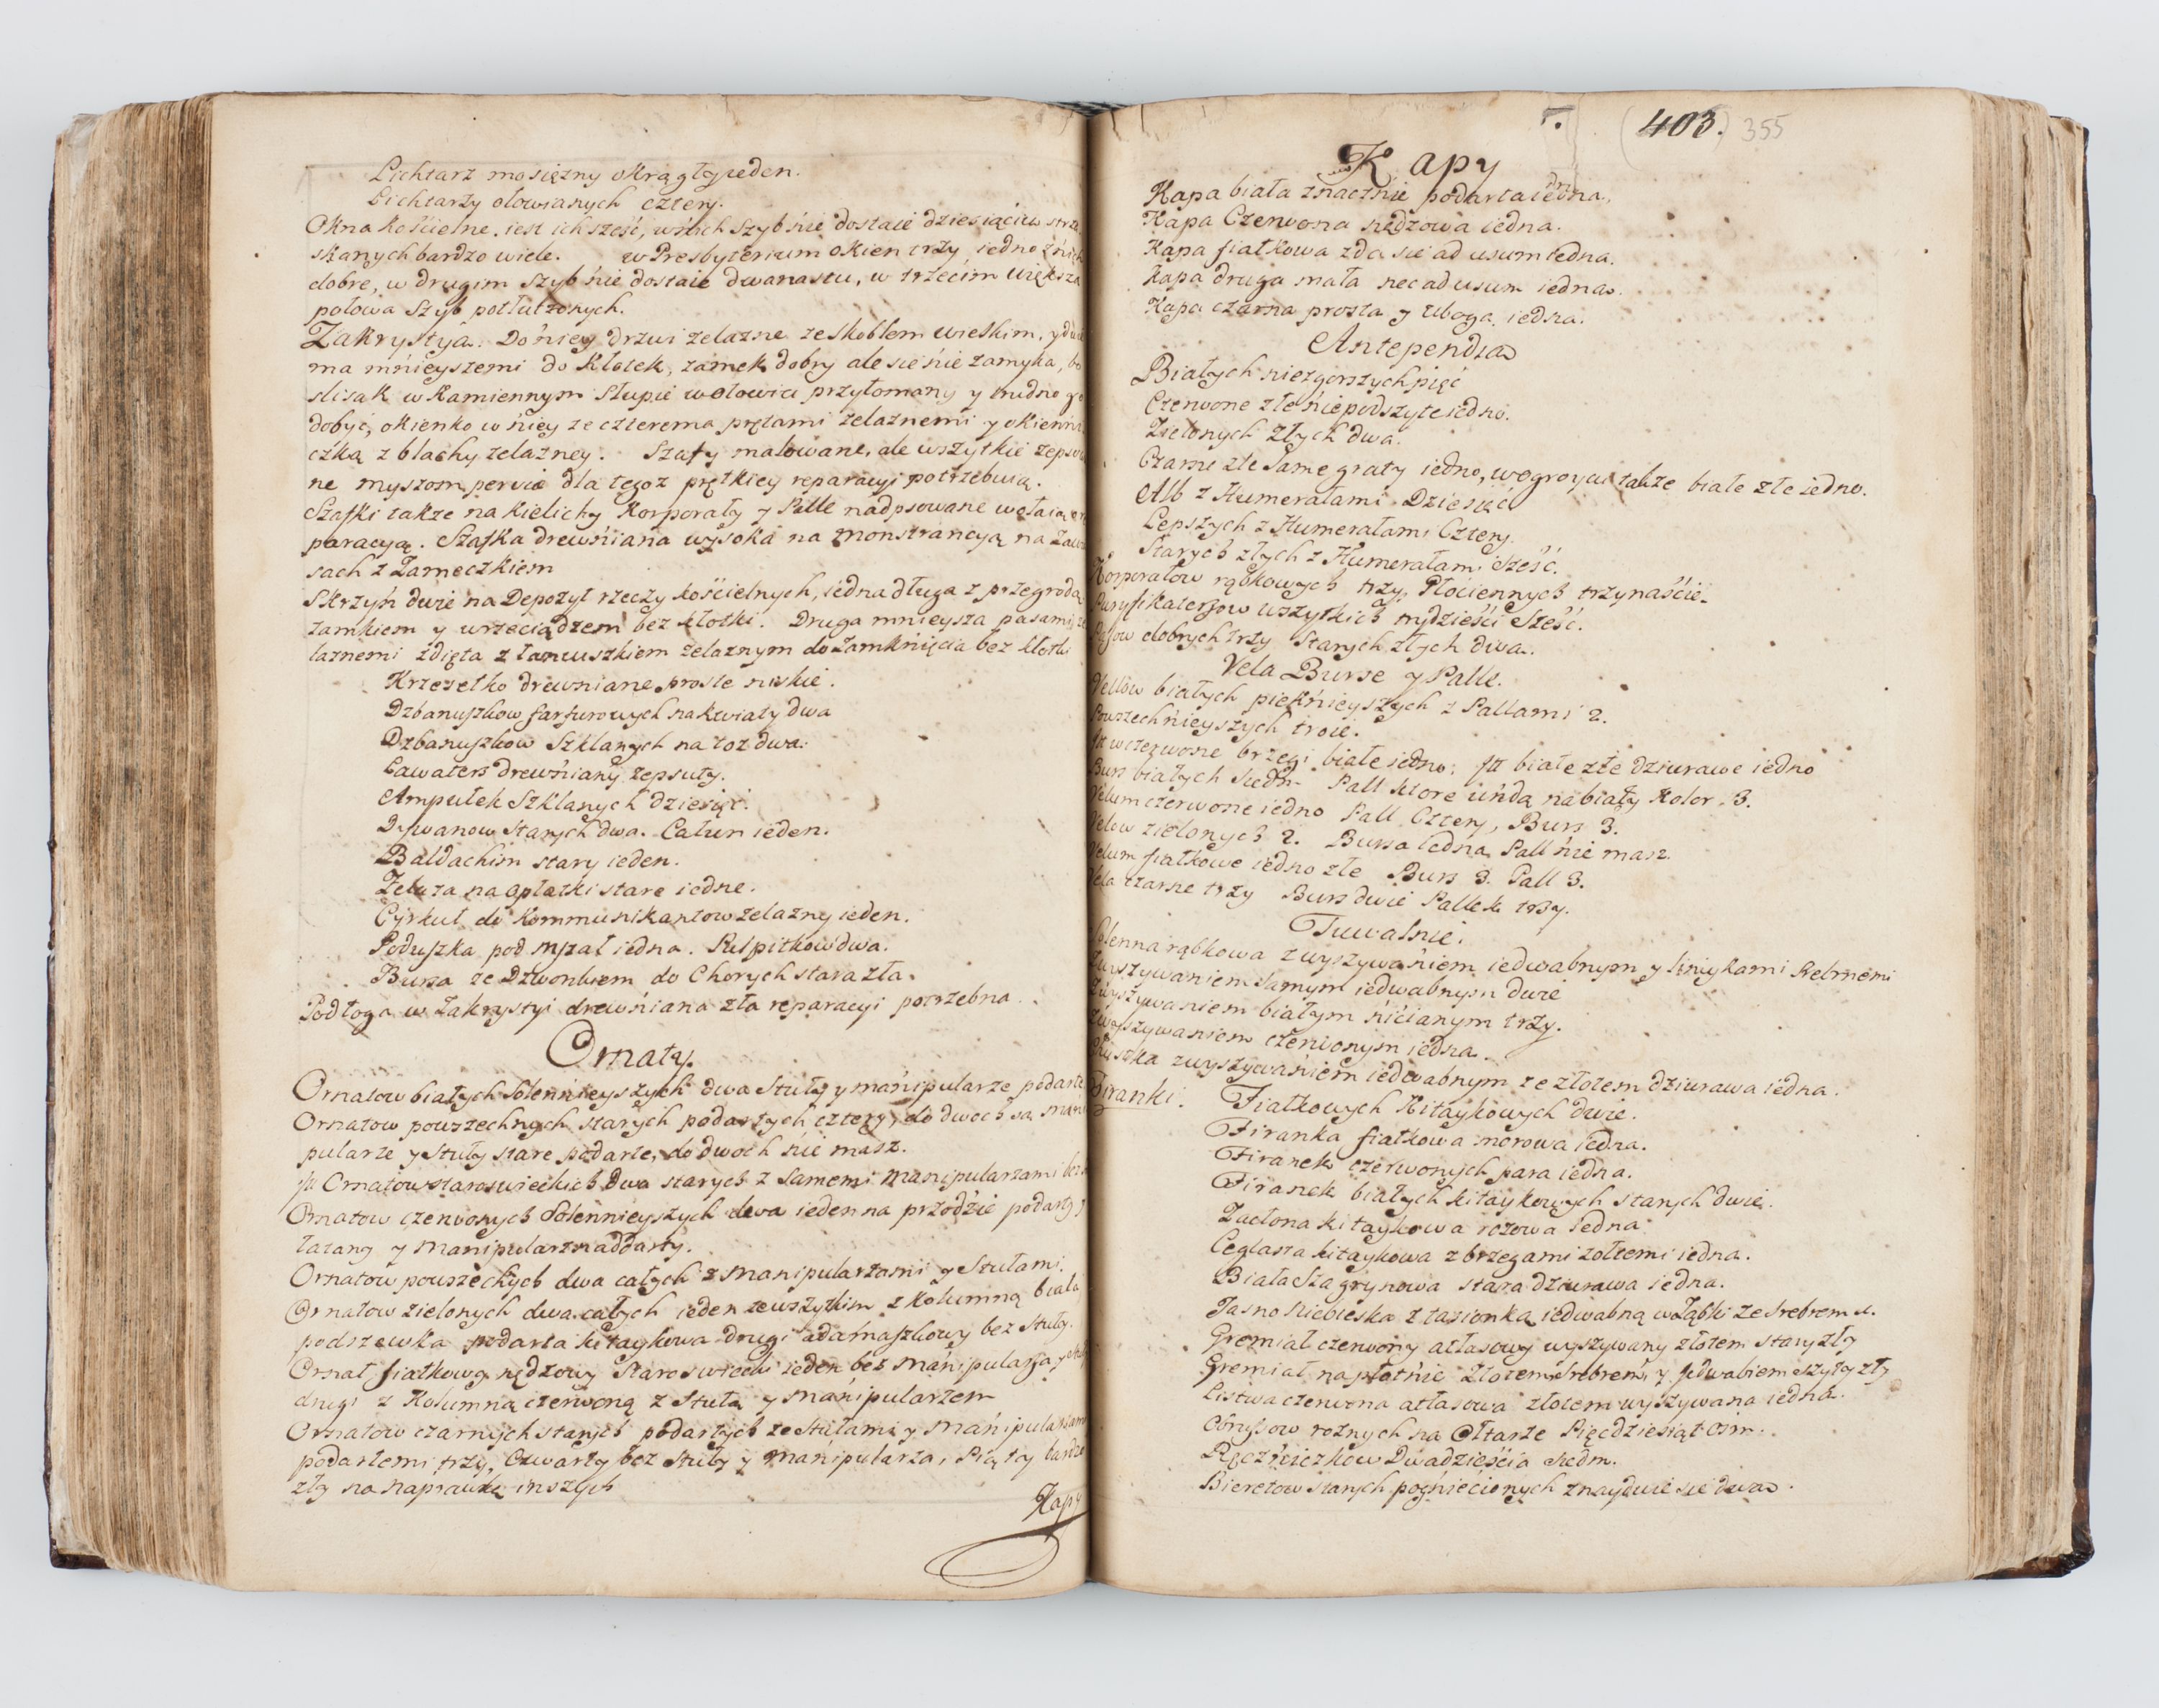 Lichtarz mosiężny okrągły jeden.
Lichtarzy ołowianych cztery.
Okna kościelne, iest ich sześć, w nich szyb nie dostaie dziesiąciu
skanych bardzo wiele. w Presbyterium okien trzy, iedno z nich
dobre, w drugim szyb nie dostaie dwanastu, w trzecim większa
połowa szyb potłuczonych.
Zakrystya. Do niey drzwi zelazne ze skoblem wielkim, y dwie
ma mnieyszemi do kłotek, zamek dobry ale sie nie zamyka, bo
slisak w kamiennym słupie w ołowiu przyłomany y trudno go
dobyć, okienko w niey ze czterema prętami zelaznemi y okienni
czką z blachy zelazney. Szafy malowane, ale wszytkie zepsowa
ne myszom pervia dla tegoz prętkiey reparacyi potrzebuią.
Szafki takze na kielichy Korporały y Palle nadpsowane wołaią o re
paracyą. Szafka drewniana wysoka na monstrancyą na zawia
sach z zameczkiem
Skrzyń dwie na Depozyt rzeczy kościelnych, iedna długa z przegrodą
zamkiem y wrzeciądzem bez kłotki. Druga mnieysza pasami ze
laznemi zdięta z łancuszkiem zelaznym do zamknięcia bez kłotki
Krzesełko drewniane proste niskie.
Dzbanuszkow farfurowych na kwiaty dwa
Dzbanuszkow Szklanych na toz dwa.
Lawaterz drewniany zepsuty.
Ampułek Szklanych dziesięć.
Dywanow starych dwa. Całun ieden.
Baldachim stary ieden.
Zelaza na opłatki stare iedne.
Cyrkuł do Kommunikantow zelazny ieden.
Poduszka pod mszał iedna. Pulpitkow dwa.
Bursa ze Dzwonkiem do Chorych stara zła.
Podłoga w Zakrystyi drewniana zła reparacyi potrzebna.
Ornaty.
Ornatow białych Solennieyszych dwa Stuły y manipularze podarte
Ornatow powszechnych starych podartych cztery, do dwoch są mani
pularze y stuły stare podarte, do dwoch nie masz.
Jtt Ornatow staroswieckich Dwa starych z samemi manipularzami bez
Ornatow czerwonych Solennieyszych dwa ieden na przodzie podarty y
łatany y manipularz naddarty.
Ornatow powszechych dwa całych z manipularzami y Stułami.
Ornatow zielonych dwa całych ieden ze wszytkim z kolumną biała
podszewka podarta kitaykowa drugi adamaszkowy bez stuły.
Ornat fiałkowy nędzowy Staroswiecki ieden bez manipularza y
drugi z Kolumną czerwoną z stułą y manipularzem
Ornatow czarnych starych podartych ze stułami y manipularzami
podartemi trzy, Czwarty bez stuły y manipularza, Piąty bardzo
zły na naprawkę inszych
Kapy
403. 355
Kapy
Kapa biała znacznie podarta iedna.
Kapa Czerwona nędzowa iedna.
Kapa fiałkowa zda sie ad usum iedna.
Kapa druga mała nec ad usum iedna.
Kapa czarna prosta y uboga iedna.
Antependia
Białych niezgorszych pięć
Czerwone złe niepodszyte iedno.
Zielonych Złych dwa.
Czarne złe same graty iedno, w ogroycu takze białe złe iedno.
Alb z Humerałami Dziesięć
Lepszych z Humerałami Cztery.
Starych złych z Humerałami sześć.
Korporałow rąbkowych trzy, Płóciennych trzynaście.
Puryfikaterzow wszytkich trydzieści sześć.
Pasow dobrych trzy Starych złych dwa.
Vela Burse y Palle.
Vellow białych pięknieyszych z Pallami 2.
Powszechnieyszych troie.
Jtt w czerwone brzegi białe iedno, Jtt białe złe dziurawe iedno
Burs białych siedm Pall ktore uńdą na biały kolor 3.
Velum czerwone iedno Pall Cztery, Burs 3.
Velow zielonych 2. Bursa iedna Pall nie masz.
Velum fiałkowe iedno złe Burs 3. Pall 3.
Vela czarne trzy Burs dwie Pallek trzy.
Tuwalnie.
Solenna rąbkowa z wyszywaniem iedwabnym y knieykami srebrnemi
Z wyszywaniem samym iedwabnym dwie
Z wyszywaniem białym nicianym trzy.
Z wyszywaniem czerwonym iedna.
Chustka z wyszywaniem iedwabnym ze złotem dziurawa iedna.
Firanki. Fiałkowych Kitaykowych dwie.
Firanka fiałkowa morowa iedna.
Firanek czerwonych para iedna.
Firanek białych kitaykowych starych dwie.
Zasłona kitaykowa rozowa iedna.
Ceglasta kitaykowa z brzegami zołtemi iedna.
Biała Szagrynowa stara dziurawa iedna.
Jasno niebieska z tasionką iedwabną w ząbki ze srebrem.
Gremiał czerwony atłasowy wyszywany złotem stary zły
Gremiał na płotnie złotem Srebrem y Jedwabiem szyty zły
Listwa czerwona atłasowa złotem wyszywana iedna.
Obrusow roznych na Ołtarze Pięćdziesiąt osm.
Ręczniczkow Dwadzieścia siedm.
Bieretow starych pogniecionych znayduie sie dwa.